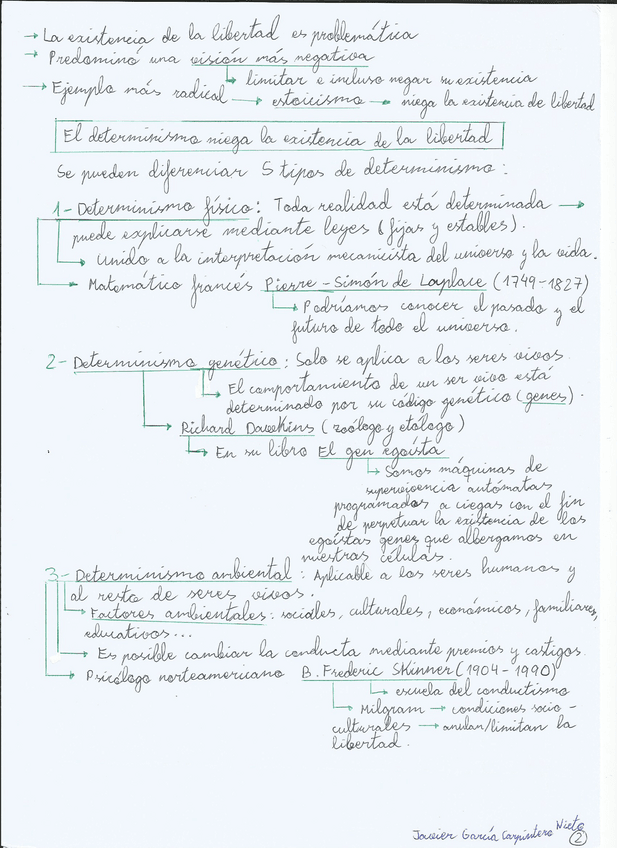 → La existencia de la libertad es problemática
→ Predominó una visión más negativa
→ limitar e incluso negar su existencia
→ Ejemplo más radical → estoicismo → niega la existencia de libertad
El determinismo niega la existencia de la libertad
Se pueden diferenciar 5 tipos de determinismo:
1- Determinismo físico: Toda realidad está determinada →
puede explicarse mediante leyes (fijas y estables).
→ Unido a la interpretación mecanicista del universo y la vida.
→ Matemático francés Pierre-Simón de Laplace (1749-1827)
→ Podríamos conocer el pasado y el
futuro de todo el universo.
2- Determinismo genético: Solo se aplica a los seres vivos.
→ El comportamiento de un ser vivo está
determinado por su código genético (genes).
→ Richard Dawkins (zoólogo y etólogo)
→ En su libro El gen egoísta
→ Somos máquinas de
supervivencia autómatas
programados a ciegas con el fin
de perpetuar la existencia de los
egoístas genes que albergamos en
nuestras células.
3- Determinismo ambiental: Aplicable a los seres humanos y
al resto de seres vivos.
→ Factores ambientales: sociales, culturales, económicos, familiares,
educativos...
→ Es posible cambiar la conducta mediante premios y castigos.
→ Psicólogo norteamericano B. Frederic Skinner (1904-1990)
→ escuela del conductismo
→ Milgram → condiciones socio-
culturales → anulan/limitan la
libertad.
Javier García Carpintero Nieto
2